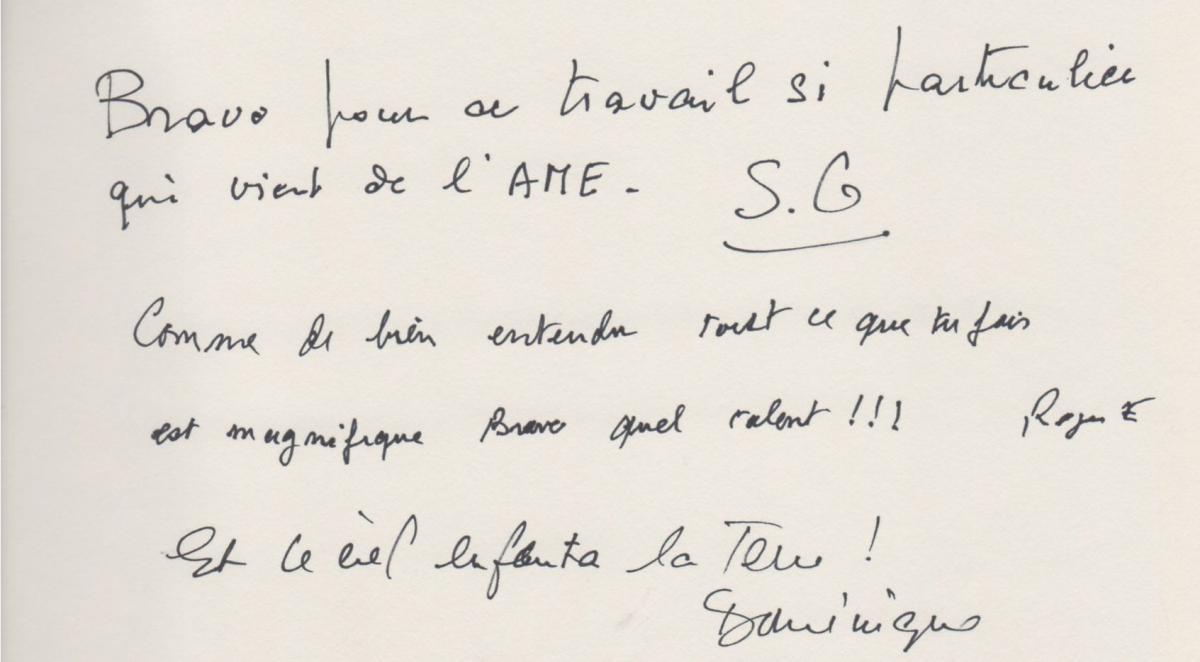 Bravo pour ce travail si particulier
qui vient de l'AME.
S.G
Comme de bien entendu tout ce que tu fais
est magnifique Bravo quel talent !!!
Roger E
Et le ciel enfanta la Terre !
Dominique